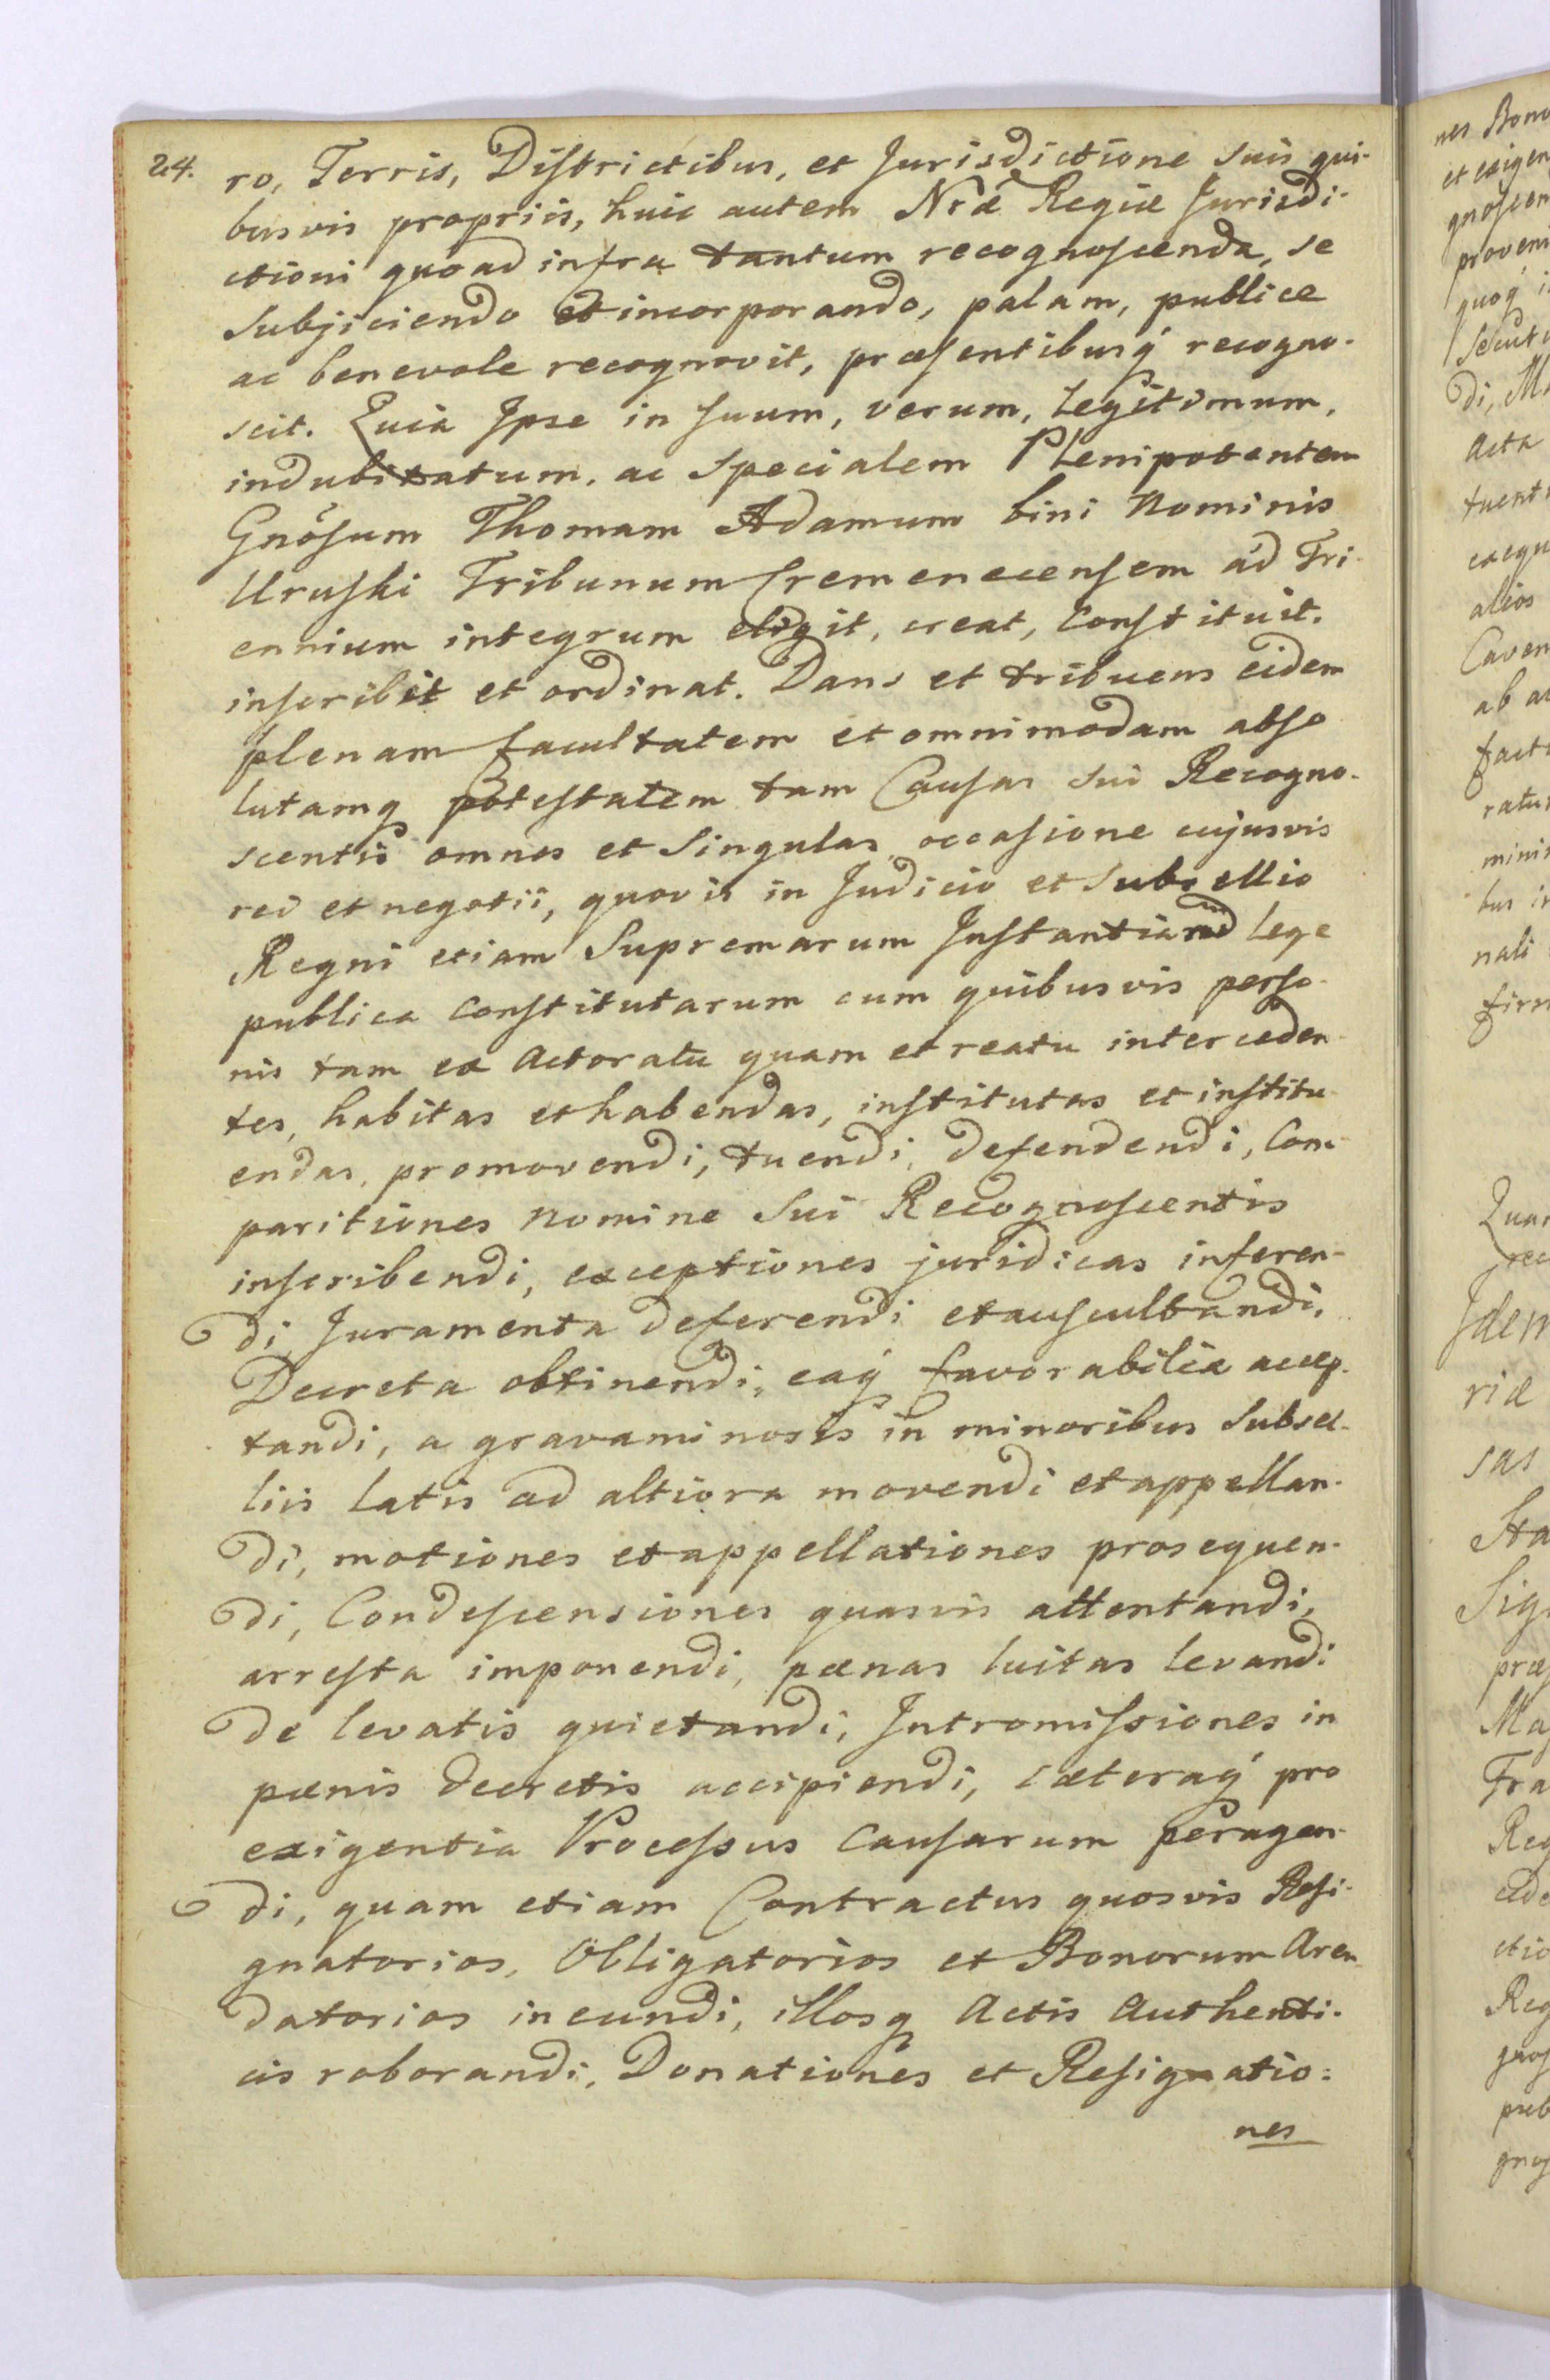 24.
ro, Terris, Districtibus, et Jurisdictione suis qui-
busvis propriis, huic autem Nrǽ Regiæ Jurisdi-
ctioni quoad infra tantum recognoscenda, se
subjiciendo et incorporando, palam, publice
ac benevole recognovit, præsentibusq́ recogno-
scit. Quia Ipse in suum, verum, legitimum,
indubitatum, ac specialem Plenipotentem
Gnõsum Thomam Adamum bini Nominis
Uruski Tribunum Cremenecensem ad Tri-
ennium integrum eligit, creat, constituit,
inscribit et ordinat. Dans et tribuens eidem
plenam facultatem et omnimodam abso
lutamq potestatem tam Causas sui Recogno-
scentis omnes et singulas occasione cujusvis
rei et negotii, quovis in Judicio et Subsellio
Regni etiam Supremarum Instantiarum lege
publica constitutarum cum quibusvis perso-
nis tam ex Actoratu quam et reatu interceden-
tes, habitas et habendas, institutas et institu-
endas, promovendi, tuendi, defendendi, Com-
paritiones nomine sui Recognoscentis
inscribendi, exceptiones juridicas inferen-
di, Juramenta deferendi et auscultandi,
Decreta obtinendi, eaq́ favorabilia accep-
tandi, a gravaminosis in minoribus Subsel-
liis latis ad altiora movendi et appellan-
di, motiones et appellationes prosequen-
di, Condescensiones quasvis attentandi,
arresta imponendi, pænas luitas levandi
de levatis quietandi, Intromissiones in
pænis decretis accipiendi, cæteraq́ pro
exigentia Processus causarum peragen-
di, quam etiam Contractus quosvis Resi-
gnatorios, Obligatorios et Bonorum Aren-
datorios ineundi, illosq Actis Authenti-
cis roborandi, Donationes et Resignatio=
nes